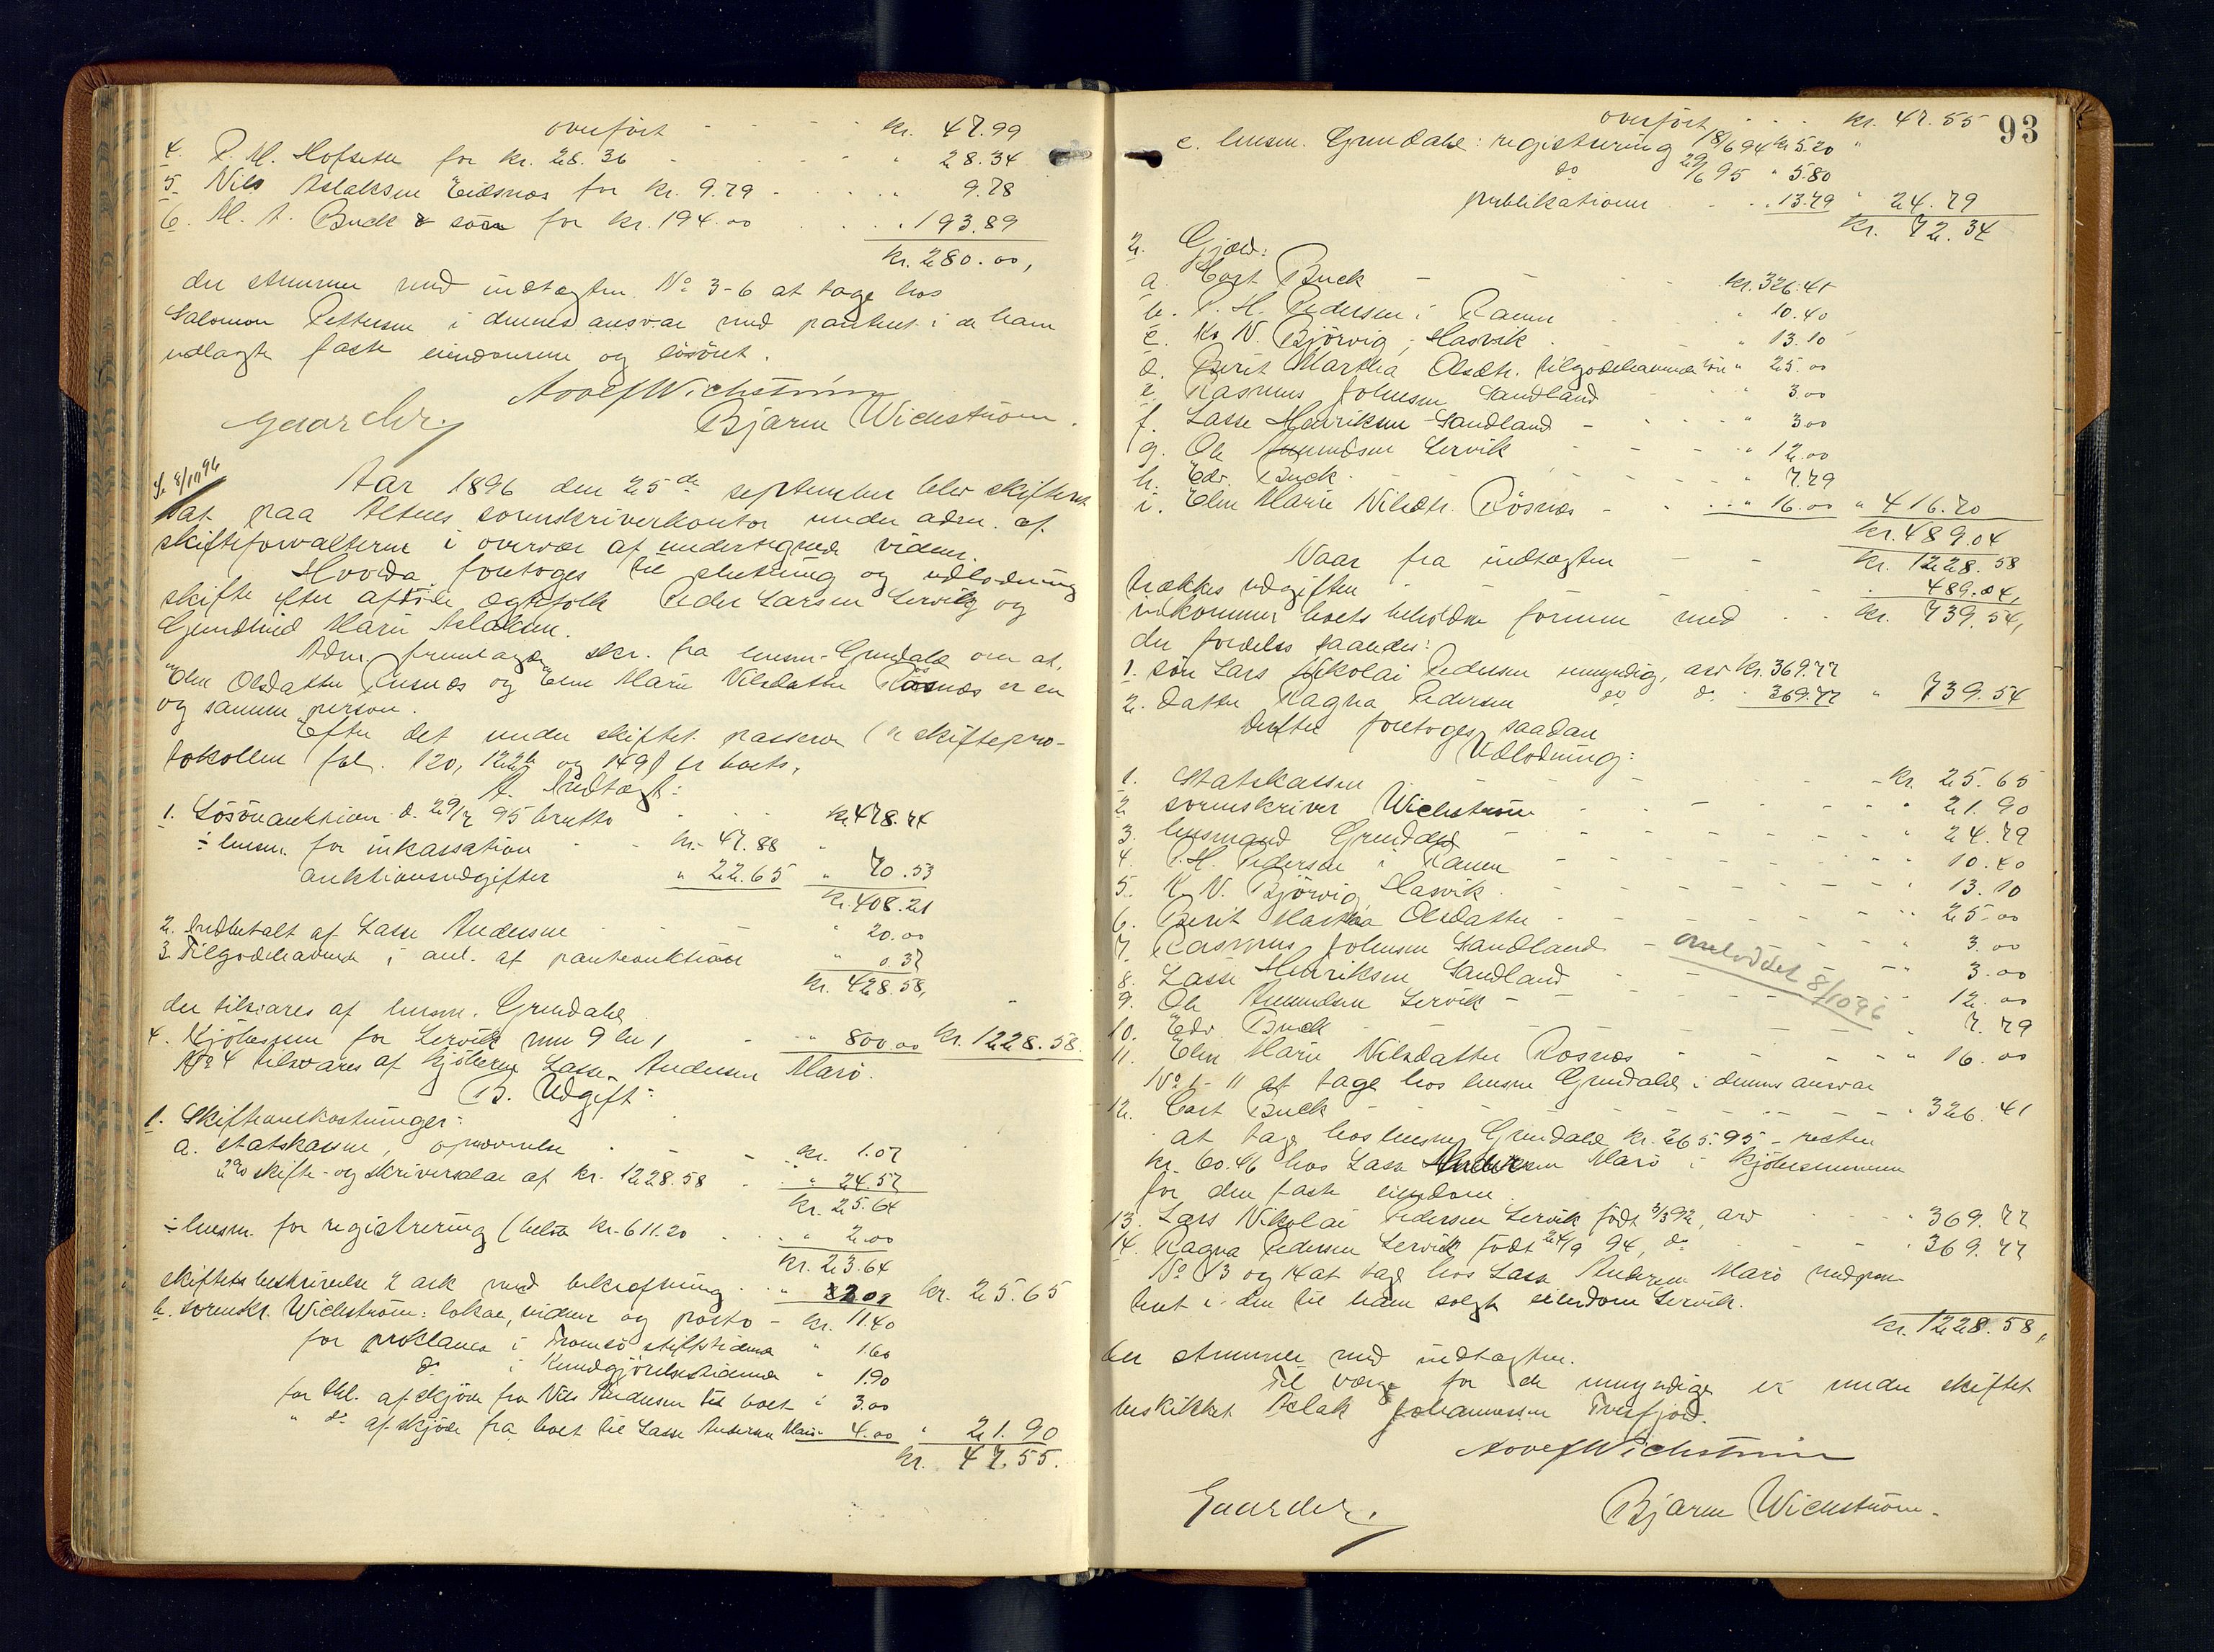 overført - - - - kr. 47.99
4. P. M. Hofseth for kr. 28.36 - - - - " 28.34
5. Nils Aslaksen Eidsnæs for kr. 9.79 - - - - " 9.78
6. M. A. Buck & søn for kr. 194.00 - - - " 193.89
kr. 280.00,
der stemmer med indtægten. No 3-6 at tage hos
Salomon Pettersen i dennes ansvar med panteret i de ham
udlagte faste eiendomme og løsøret.
Adolf Wichstrøm
Gaarder,
Bjarne Wichstrøm.
S. 8/10 96
Aar 1896 den 25de september blev skifteret
sat paa Altens sorenskriverkontor under adm. af
skifteforvalteren i overvær af undertegnede vidner.
Hvorda foretoges til slutning og udlodning
skifte efter afdøde ægtefolk Peder Larsen Lervik og
Gjundhild Marie Aslaksen.
Adm. fremlagde skr. fra lensm. Grundahl om at,
"Elen Olsdatter Rusnes og Elen Marie Nilsdatter Røsnæs er en
og samme person.
Efter det under skiftet passerede (se skiftepro-
tokollen fol. 120, 122b og 149) er boets,
A. Indtægt:
1. Løsøreauktion d. 29/7 95 brutto - - - kr. 478.74
÷ lensm. for inkassation - - kr. 47.88 "
auktionsudgifter " 22.65 " 70.53
kr. 408.21
2. Indbetalt af Lasse Andersen - - - " 20.00
3. Tilgodehavende i anl. af panteauktion " 0.37
kr. 428.58,
der tilsvares af lensm. Grundahl
4. Kjøbesum for Lervik mno 9 bno 1 - - " 800.00 kr. 1228.58.
No 4 tilsvares af kjøberen Lasse Andersen Marø.
B. Udgift:
1. Skifteomkostninger:
a. statskassen, opnævnelse - - - kr. 1.07
2% skifte- og skriversalær af kr. 1228.58 - " 24.57
kr. 25.64
÷ lensm. for registrering (beløb kr. 611.20 - " 2.00
kr. 23.64
skiftets beskrivelse 2 ark med bekræftning - " 2.01 kr. 25.65
b. sorenskr. Wichstrøm: lokale, vidner og porto - kr. 11.40
for proklama i Tromsø stiftstidende " 1.60
do i Kundgjørelsestidende " 1.90
for thl. af skjøde fra Nils Andersen til boet " 3.00
" do af skjøde fra boet til Lasse Andersen Marø " 4.00 " 21.90
kr. 47.55.
93
overført - - - kr. 47.55
c. lensm. Grundahl: registrering 18/6 94 kr 5.20 "
do 29/6 95 " 5.80
publikationer - - " 13.79 " 24.79
kr. 72.34
2. Gjæld:
a. Cort Buck - - - kr. 326.41
b. P. H. Pedersen i Ranen " 10.40
c. K. N. Bjørvig, Hasvik - " 13.10
d. Berit Martha Olsdtr. tilgodehavende løn " 25.00
e. Rasmus Johnsen Sandland - - " 3.00
f. Lasse Henriksen Sandland - - - " 3.00
g. Ole Amundsen Lervik - - - " 12.00
h. Edv. Buck - - - " 7.79
i. Elen Marie Nilsdtr. Røsnæs - - " 16.00 " 416.70
kr. 489.04
Naar fra indtægten - - - kr. 1228.58
trækkes udgiften - - - " 489.04,
udkommer boets beholdne formue med - - kr. 739.54,
der fordeles saaledes:
1. søn Lars Nikolai Pedersen umyndig, arv kr. 369.77
2. datter Ragna Pedersen do do " 369.77 " 739.54
Derefter foretoges saadan
Udlodning:
1. Statskassen - - - kr. 25.65
2. sorenskriver Wichstrøm - - - " 21.90
3. lensmand Grundahl - - - " 24.79
4. P. H. Pedersen i Ranen - - - " 10.40
5. K. N. Bjørvig, Hasvik - - - " 13.10
6. Berit Martha Olsdatter - - - " 25.00
7. Rasmus Johnsen Sandland - - - " 3.00
8. Lasse Henriksen Sandland - - - " 3.00
9. Ole Amundsen Lervik - - - " 12.00
10. Edv. Buck - - - " 7.79
11. Elen Marie Nilsdatter Rosnæs - - - " 16.00
8/10 96
No 1-11 at tage hos lensm Grundahl i dennes ansvar
12. Cort Buck - - - " 326.41
at tage hos lensm. Grundahl kr. 265.95 - resten
kr. 60.46 hos Lasse Andersen Marø i kjøbesummen
for den faste eiendom.
13. Lars Nikolai Pedersen Lervik født 3/3 92, arv - - " 369.77
14. Ragna Pedersen Lervik født 24/9 94, do - - " 369.77
No 13 og 14 at tage hos Lasse Andersen Marø med pan-
teret i den til ham solgte eiendom Lervik.
kr. 1228.58,
der stemmer med indtægten.
Til værge for de umyndige er under skiftet
beskikket Aslak Johannessen Tverfjord.
Adolf Wichstrøm
Gaarder.
Bjarne Wichstrøm.